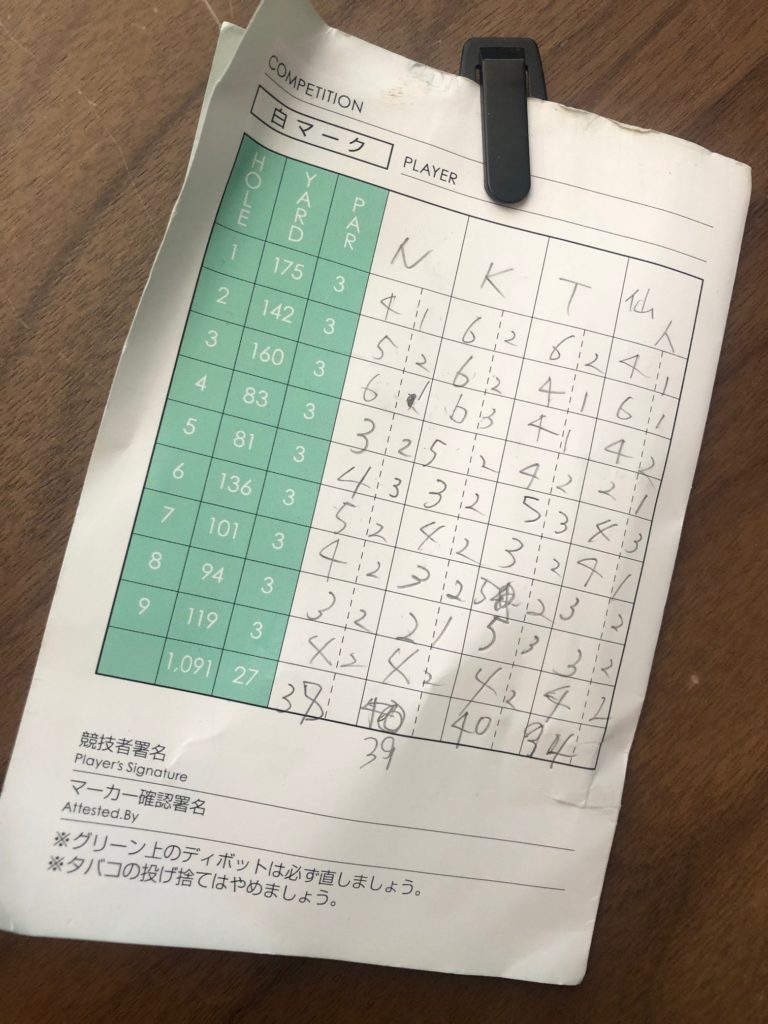 COMPETITION
白マーク PLAYER
HOLE YARD PAR N K T 仙人
1 175 3 4 1 6 2 6 2 4 1
2 142 3 5 2 6 2 4 1 6 1
3 160 3 6 1 6 3 4 1 4 2
4 83 3 3 2 5 2 4 2 2 1
5 81 3 4 3 3 2 5 3 4 3
6 136 3 5 2 4 2 3 2 4 1
7 101 3 4 2 3 2 3 2 3 2
8 94 3 3 2 2 1 5 3 3 2
9 119 3 4 2 4 2 4 2 4 2
1,091 27 38 40 34
39
競技者署名
Player's Signature
マーカー確認署名
Attested.By
※グリーン上のディボットは必ず直しましょう。
※タバコの投げ捨てはやめましょう。